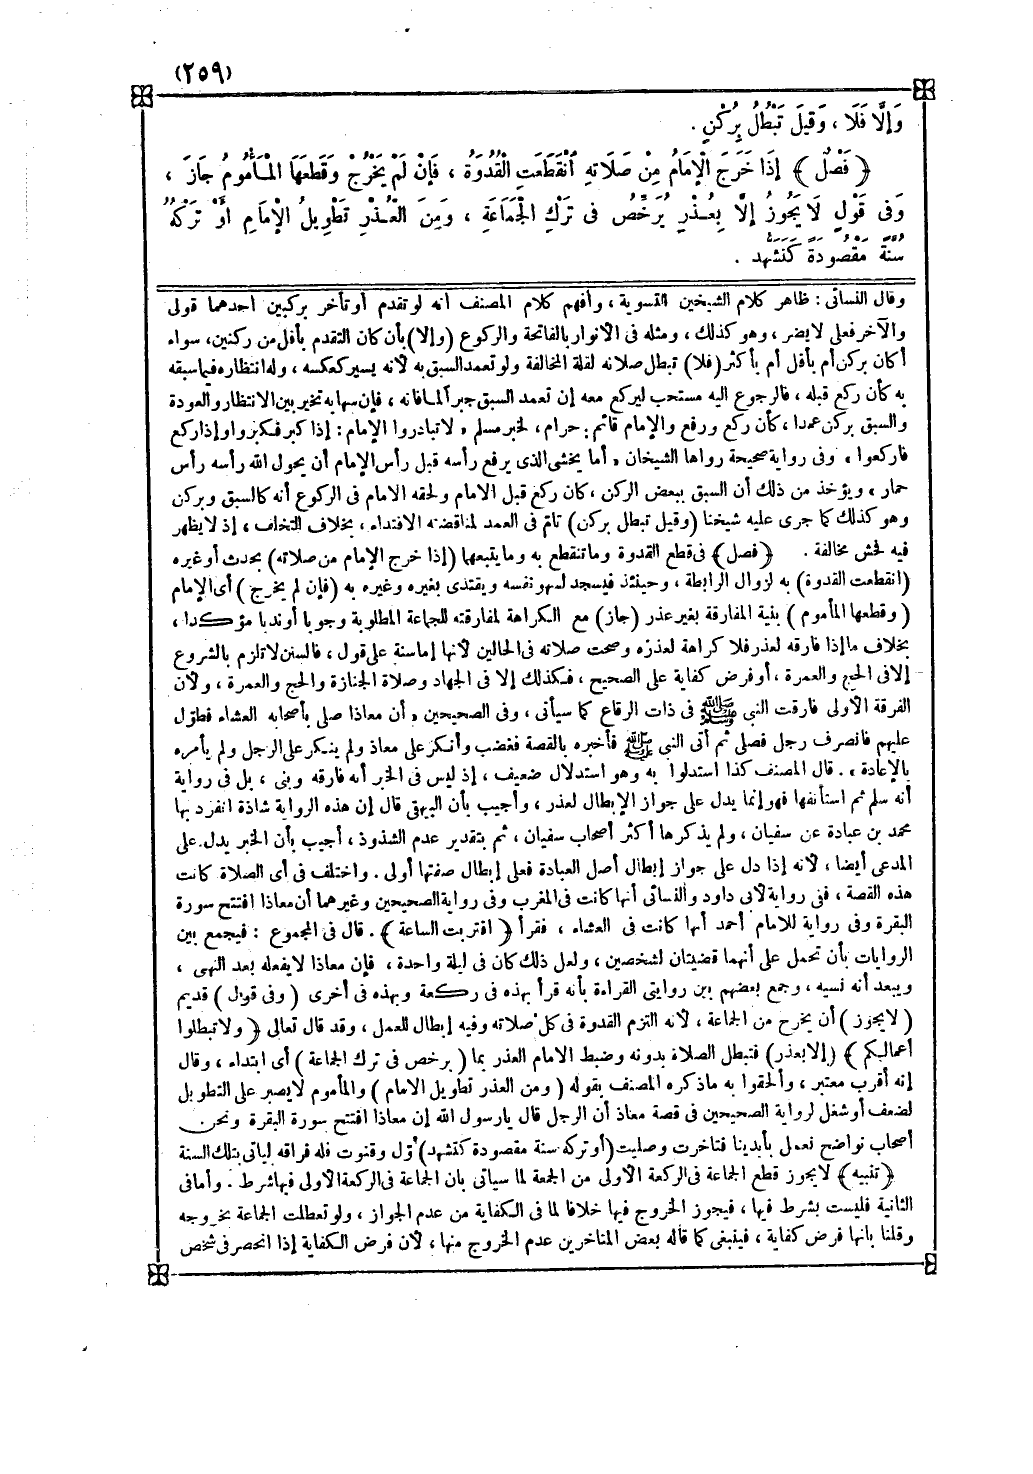 (٢٥٩)
وَإِلَّا فَلَا ، وَقِيلَ تَبْطُلُ بِرُكْنٍ .
﴿ فَصْلٌ ﴾ إِذَا خَرَجَ الْإِمَامُ مِنْ صَلَاتِهِ انْقَطَعَتِ الْقُدْوَةُ ، فَإِنْ لَمْ يَخْرُجْ وَقَطَعَهَا الْمَأْمُومُ جَازَ ،
وَفِى قَوْلٍ لَا يَجُوزُ إِلَّا بِعُذْرٍ يُرَخِّصُ فِى تَرْكِ الْجَمَاعَةِ ، وَمِنَ الْعُذْرِ تَطْوِيلُ الْإِمَامِ أَوْ تَرْكُهُ
سُنَّةً مَقْصُودَةً كَتَشَهُّدٍ .
وقال النسائى : ظاهر كلام الشيخين التسوية ، وأفهم كلام المصنف أنه لو تقدم أو تأخر بركنين أحدهما قولى
والآخر فعلى لا يضر ، وهو كذلك ، ومثله فى الأنوار بالفاتحة والركوع (وإلا) بأن كان التقدم بأقل من ركنين، سواء
أكان بركن أم بأقل أم بأكثر (فلا) تبطل صلاته لقلة المخالفة ولو تعمد السبق به لأنه يسير كعكسه ، وله انتظاره فيما سبقه
به كأن ركع قبله ، فالرجوع اليه مستحب ليركع معه إن تعمد السبق جبرا لما فاته ، فإن سها به تخير بين الانتظار والعودة
والسبق بركن عمدا ، كأن ركع ورفع والإمام قائم : حرام، لخبر مسلم « لا تبادروا الإمام : إذا كبر فكبروا وإذا ركع
فاركعوا » وفى رواية صحيحة رواها الشيخان « أما يخشى الذى يرفع رأسه قبل رأس الإمام أن يحول الله رأسه رأس
حمار » ويؤخذ من ذلك أن السبق ببعض الركن ، كأن ركع قبل الامام ولحقه الامام فى الركوع أنه كالسبق بركن
وهو كذلك كما جرى عليه شيخنا (وقيل تبطل بركن) تام فى العمد لمناقضته الاقتداء ، بخلاف التخلف ، إذ لا يظهر
فيه فحش مخالفة . ﴿ فصل ﴾ فى قطع القدوة وما تنقطع به وما يتبعها (إذا خرج الإمام من صلاته) بحدث أو غيره
(انقطعت القدوة) به لزوال الرابطة ، وحينئذ فيسجد لسهو نفسه ويقتدى بغيره وغيره به (فإن لم يخرج ) أى الإمام
( وقطعها المأموم ) بنية المفارقة بغير عذر (جاز) مع الكراهة لمفارقته للجماعة المطلوبة وجوبا أو ندبا مؤكدا ،
بخلاف ما إذا فارقه لعذر فلا كراهة لعذره وصحت صلاته فى الحالين لأنها إما سنة على قول ، فالسنن لا تلزم بالشروع
إلا فى الحج والعمرة ، أو فرض كفاية على الصحيح ، فكذلك إلا فى الجهاد وصلاة الجنازة والحج والعمرة ، ولأن
الفرقة الأولى فارقت النبي ﷺ فى ذات الرقاع كما سيأتى ، وفى الصحيحين « أن معاذا صلى بأصحابه العشاء فطوّل
عليهم فانصرف رجل فصلى ثم أتى النبي ﷺ فأخبره بالقصة فغضب وأنكر على معاذ ولم ينكر على الرجل ولم يأمره
بالإعادة » . قال المصنف كذا استدلوا به وهو استدلال ضعيف ، إذ ليس فى الخبر أنه فارقه وبنى ، بل فى رواية
أنه سلم ثم استأنفها فهو إنما يدل على جواز الإبطال لعذر ، وأجيب بأن البيهقى قال إن هذه الرواية شاذة انفرد بها
محمد بن عبادة عن سفيان ، ولم يذكرها أكثر أصحاب سفيان ، ثم بتقدير عدم الشذوذ ، أجيب بأن الخبر يدل على
المدعى أيضا ، لأنه إذا دل على جواز إبطال أصل العبادة فعلى إبطال صفتها أولى . واختلف فى أى الصلاة كانت
هذه القصة ، ففى رواية لأبى داود والنسائى أنها كانت فى المغرب وفى رواية الصحيحين وغيرهما أن معاذا افتتح سورة
البقرة وفى رواية للامام أحمد أنها كانت فى العشاء ، فقرأ ﴿ اقتربت الساعة ﴾ . قال فى المجموع : فيجمع بين
الروايات بأن تحمل على أنهما قضيتان لشخصين ، ولعل ذلك كان فى ليلة واحدة ، فإن معاذا لا يفعله بعد النهى ،
ويبعد أنه نسيه ، وجمع بعضهم بين روايتى القراءة بأنه قرأ بهذه فى ركعة وبهذه فى أخرى ( وفى قول ) قديم
( لا يجوز ) أن يخرج من الجماعة ، لأنه التزم القدوة فى كل صلاته وفيه إبطال للعمل ، وقد قال تعالى ﴿ ولا تبطلوا
أعمالكم ﴾ (إلا بعذر) فتبطل الصلاة بدونه وضبط الامام العذر بما ( يرخص فى ترك الجماعة ) أى ابتداء ، وقال
إنه أقرب معتبر ، وألحقوا به ما ذكره المصنف بقوله ( ومن العذر تطويل الامام ) والمأموم لا يصبر على التطويل
لضعف أو شغل لرواية الصحيحين فى قصة معاذ أن الرجل قال يا رسول الله إن معاذا افتتح سورة البقرة ونحن
أصحاب نواضح نعمل بأيدينا فتأخرت وصليت (أو تركه سنة مقصودة كتشهد) أوّل وقنوت فله فراقه ليأتى بتلك السنة
﴿ تنبيه ﴾ لا يجوز قطع الجماعة فى الركعة الأولى من الجمعة لما سيأتى بأن الجماعة فى الركعة الأولى فيها شرط . وأما فى
الثانية فليست بشرط فيها ، فيجوز الخروج فيها خلافا لما فى الكفاية من عدم الجواز ، ولو تعطلت الجماعة بخروجه
وقلنا بأنها فرض كفاية ، فينبغى كما قاله بعض المتأخرين عدم الخروج منها ، لأن فرض الكفاية إذا انحصر فى شخص